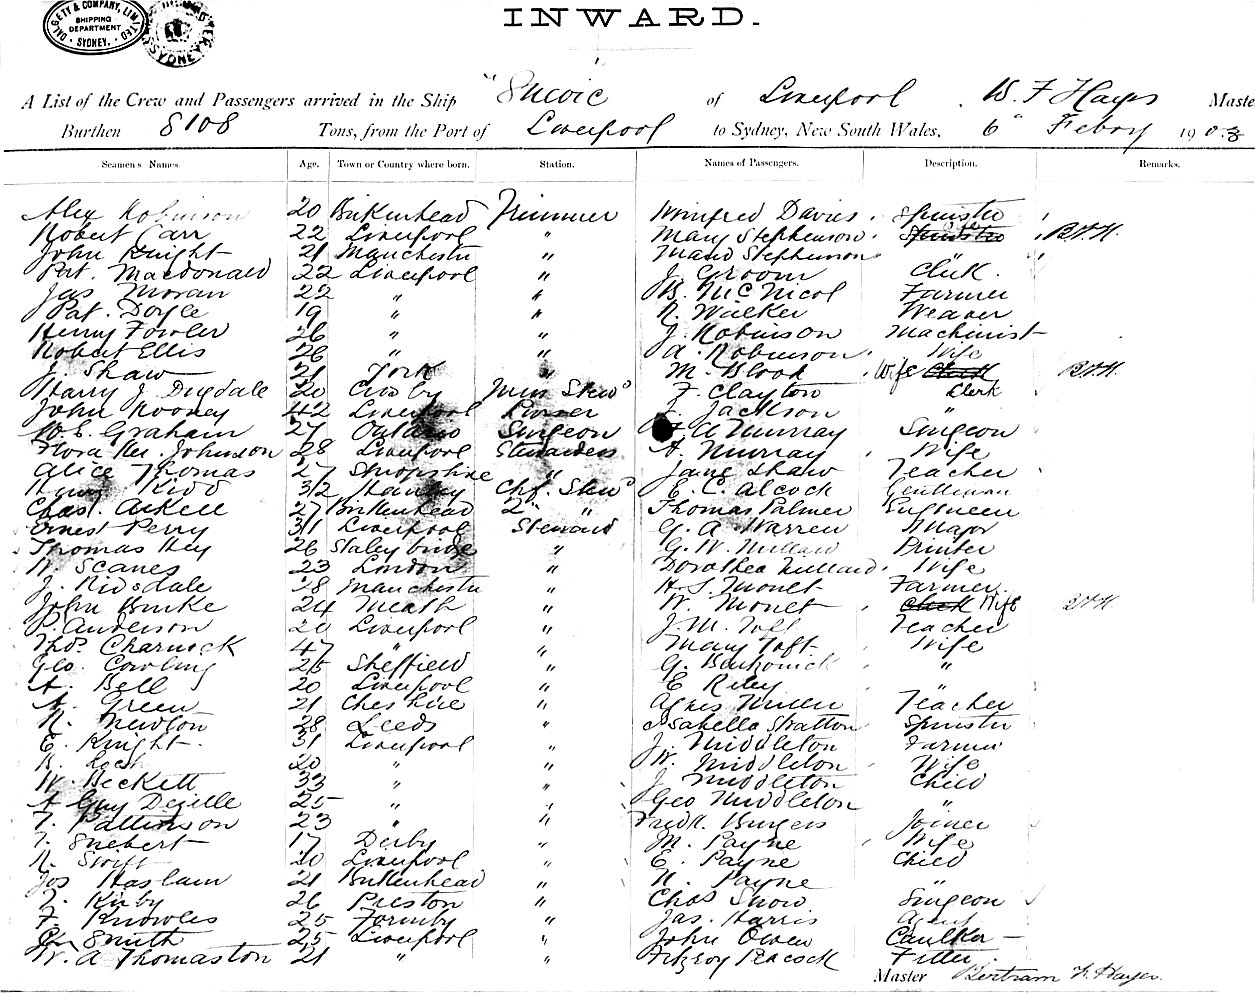 DALGETY & COMPANY, LIMITED
SHIPPING
DEPARTMENT
SYDNEY.
SYDNEY
INWARD.
A List of the Crew and Passengers arrived in the Ship "Suevic" of Liverpool . W. F Hayes Maste
Burthen 8108 Tons, from the Port of Liverpool to Sydney, New South Wales, 6" Febry 1903
Seamen's Names. Age. Town or Country where born. Station. Names of Passengers. Description. Remarks.
Alex Robinson 20 Birkenhead Trimmer Winifred Davies Spinster
Robert Carr 22 Liverpool " Mary Stephenson Spinster
John Knight 21 Manchester " Maud Stephenson "
Pat. Macdonald 22 Liverpool " J. Groom Clerk.
Jas Moran 22 " " B. McNicol Farmer
Pat. Doyle 19 " " R. Walker Weaver
Henry Fowler 26 " " J. Robinson Machinist
Robert Ellis 26 " " A. Robinson Wife
J. Shaw 21 York " M. Blood Wife Clerk
Harry J. Dugdale 20 Crosby F. Clayton Clerk
John Rooney 42 Liverpool Jackson "
W. E. Graham 27 Ontario Surgeon A Murray Surgeon
Flora Johnson 28 Liverpool Stewardess A. Murray Wife
Alice Thomas 27 Shropshire " Jane Shaw Teacher
Kidd 32 Hanley Chf. Stewd E. C. Alcock Gentleman
Chas. Arkell 27 Birkenhead 2" " Thomas Palmer Engineer
Ernest Perry 31 Liverpool Steward G. A Warren Major
Thomas Hey 26 Staley bridge " G. W. Millard Printer
W. Scanes 23 London " Dorothea Millard Wife
J. Ridsdale 18 Manchester " H. S. Monet Farmer
John Burke 24 Meath " W. Monet Clerk Wife
P. Anderson 20 Liverpool " J. M. Teacher
Thos. Charnock 47 " " Mary Toft Wife
Geo. Cowling 25 Sheffield " G. "
A. Bell 20 Liverpool " E Riley "
A. Green 21 Cheshire " Agnes Teacher
R. Newton 28 Leeds " Isabella Stratton Spinster
E. Knight 31 Liverpool " J. Middleton Farmer
20 " " W. Middleton Wife
W. Beckett 33 " " J. Middleton Child
A Guy 25 " " Geo Middleton "
T. Pattinson 23 " " Fredk. Burgess Joiner
T. 17 Derby " M. Payne Wife
R. Swift 20 Liverpool " E. Payne Child
Jos Haslam 21 Birkenhead " Payne "
T. Kirby 26 Preston " Chas Snow Surgeon
F. Knowles 25 Formby " Jas. Harris Agent
Smith 25 Liverpool " John Owen Caulker
W. A Thomaston 21 " Fitzroy Peacock Fitter.
Master Bertram F. Hayes.